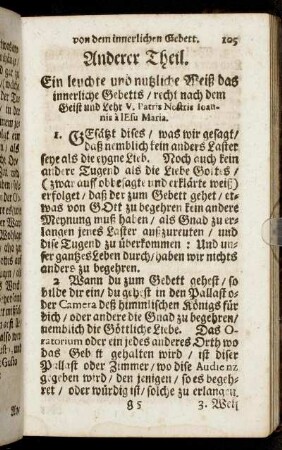 von dem innerlichen Gebett. 105
Anderer Theil.
Ein leuchte und nutzliche Weiß das
innerliche Gebetts / recht nach dem
Geist und Lehr V. Patris Nostris Ioan-
nis à IEsu Maria.
1. GEsätzt dises / was wir gesagt /
daß nemblich kein anders Laster
seye als die eygne Lieb. Noch auch kein
andere Tugend als die Liebe Gottes /
( zwar auff obbesagte und erklärte weiß )
erfolget / daß der zum Gebett gehet / et-
was von GOtt zu begehren kein andere
Meynung muß haben / als Gnad zu er-
langen jenes Laster außzureuten / und
dise Tugend zu überkommen : Und un-
ser gantzes Leben durch / haben wir nichts
anders zu begehren.
2 Wann du zum Gebett gehest / so
bilde dir ein / du gehest in den Pallast o-
der Camera deß himmlischen Königs für
dich / oder andere die Gnad zu begehren /
nemblich die Göttliche Liebe. Das O-
ratorium oder ein jedes anderes Orth wo
das Gebett gehalten wird / ist diser
Pallast oder Zimmer / wo dise Audienz
gegeben wird / den jenigen / so es begeh-
ret / oder würdig ist / solche zu erlangen.
g 5 3. Weil